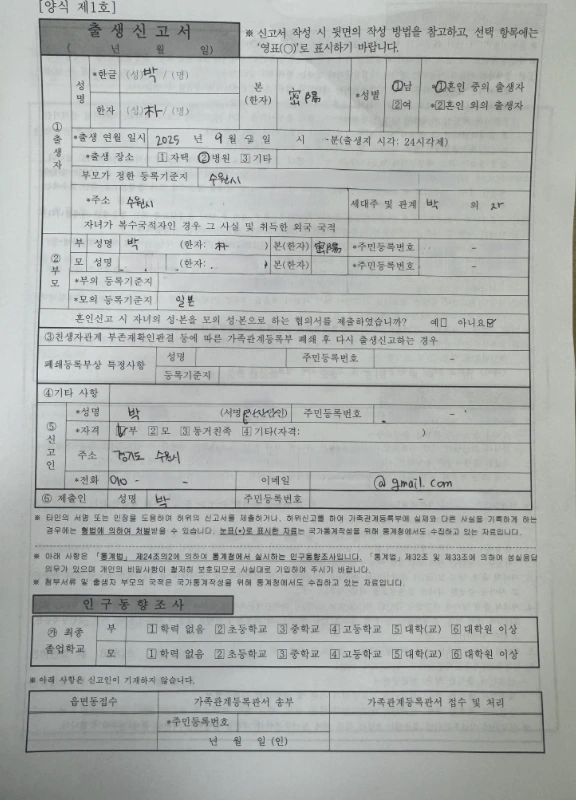 [양식 제1호]
출 생 신 고 서
( 년 월 일)
※ 신고서 작성 시 뒷면의 작성 방법을 참고하고, 선택 항목에는 '영표(○)'로 표시하기 바랍니다.
① 출생자
성명
*한글 (성)박 / (명)
한자 (성)朴 / (명)
본(한자) 密陽
*성별 ①남 ②여
*①혼인 중의 출생자
*②혼인 외의 출생자
*출생 연월 일시 2025 년 9 월 일 시 분(출생지 시각: 24시각제)
*출생 장소 ①자택 ②병원 ③기타
부모가 정한 등록기준지 수원시
*주소 수원시 세대주 및 관계 박 의 자
자녀가 복수국적자인 경우 그 사실 및 취득한 외국 국적
② 부모
부 성명 박 (한자: 朴 ) 본(한자) 密陽 *주민등록번호 -
모 성명 (한자: ) 본(한자) *주민등록번호 -
*부의 등록기준지
*모의 등록기준지 일본
혼인신고 시 자녀의 성·본을 모의 성·본으로 하는 협의서를 제출하였습니까? 예□ 아니요☑
③친생자관계 부존재확인판결 등에 따른 가족관계등록부 폐쇄 후 다시 출생신고하는 경우
폐쇄등록부상 특정사항 성명 주민등록번호 -
등록기준지
④기타 사항
⑤ 신고인
*성명 박 (서명 또는 날인) 주민등록번호 -
*자격 ①부 ②모 ③동거친족 ④기타(자격: )
주소 경기도 수원시
*전화 010 - - 이메일 @ gmail. com
⑥ 제출인 성명 박 주민등록번호 -
※ 타인의 서명 또는 인장을 도용하여 허위의 신고서를 제출하거나, 허위신고를 하여 가족관계등록부에 실제와 다른 사실을 기록하게 하는
경우에는 형법에 의하여 처벌받을 수 있습니다. 눈표(*)로 표시한 자료는 국가통계작성을 위해 통계청에서도 수집하고 있는 자료입니다.
※ 아래 사항은 「통계법」 제24조의2에 의하여 통계청에서 실시하는 인구동향조사입니다. 「통계법」제32조 및 제33조에 의하여 성실응답
의무가 있으며 개인의 비밀사항이 철저히 보호되므로 사실대로 기입하여 주시기 바랍니다.
※ 첨부서류 및 출생자 부모의 국적은 국가통계작성을 위해 통계청에서도 수집하고 있는 자료입니다.
인구동향조사
㉮ 최종 졸업학교
부 ①학력 없음 ②초등학교 ③중학교 ④고등학교 ⑤대학(교) ⑥대학원 이상
모 ①학력 없음 ②초등학교 ③중학교 ④고등학교 ⑤대학(교) ⑥대학원 이상
※ 아래 사항은 신고인이 기재하지 않습니다.
읍면동접수 가족관계등록관서 송부 가족관계등록관서 접수 및 처리
*주민등록번호 -
년 월 일 (인)